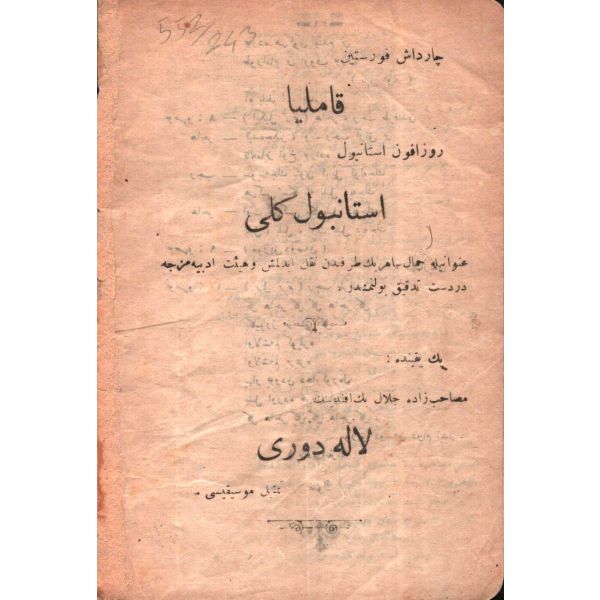 552/243
چارداش فورستین
قاملیا
روزافون استانبول
استانبول کلی
عنوانیله جمال ساهر بك طرفندن نقل ایدلمش و هیئت ادبیه مزجه
دردست تدقیق بولنمشدر .
پك یقینده :
مصاحب زاده جلال بك افندینك
لاله دوری
تمثیل موسیقیسی .